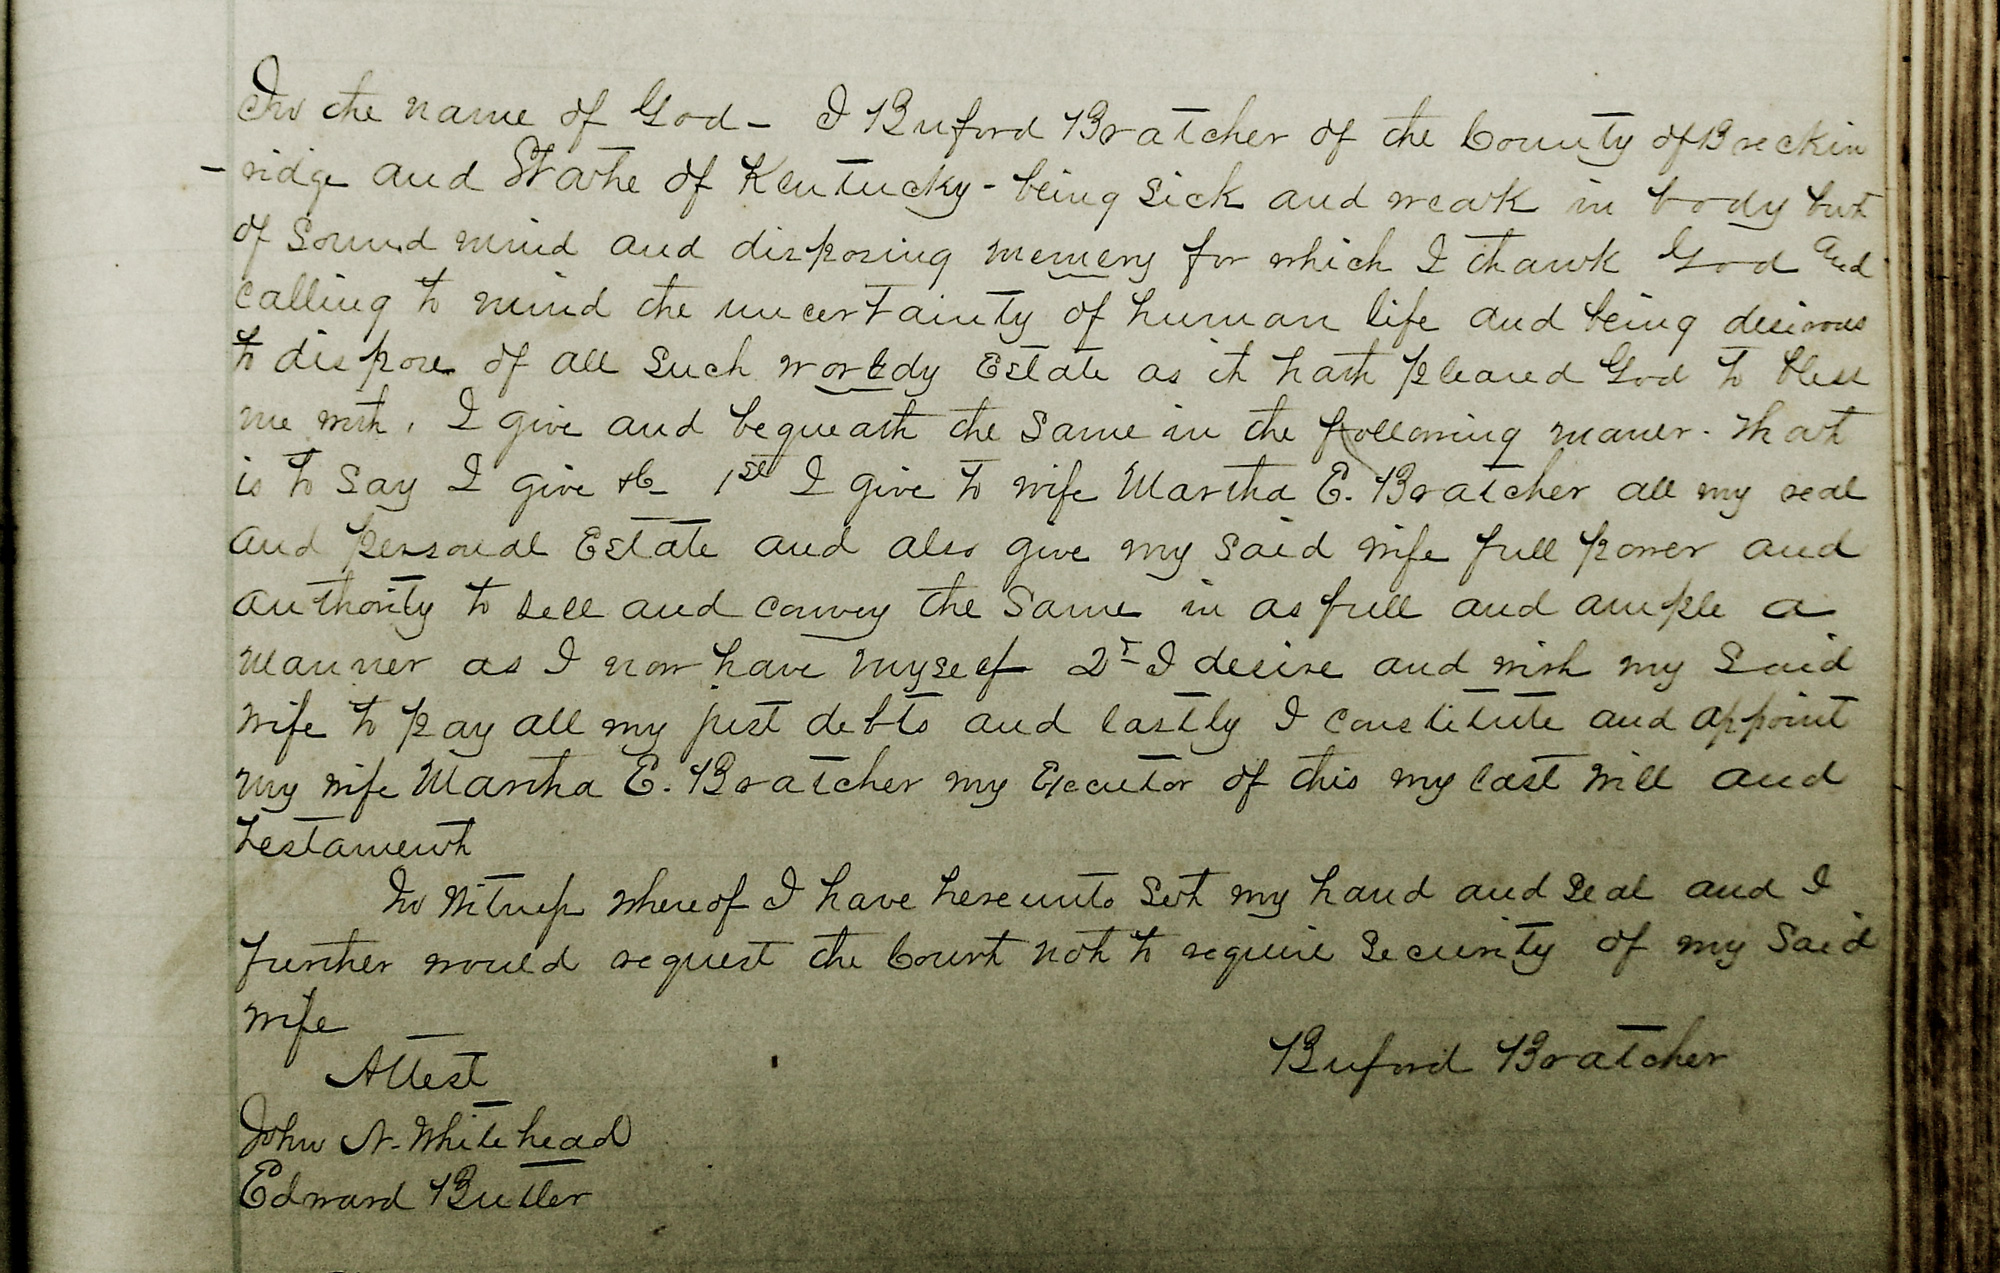 In the name of God - I Buford Bratcher of the County of Breckin
- ridge and State of Kentucky - being sick and weak in body but
of sound mind and disposing memory for which I thank God and
calling to mind the uncertainty of human life and being desirous
to dispose of all such worldy Estate as it hath pleased God to bless
me with, I give and bequeath the same in the following maner. that
is to say I give &c 1st I give to wife Martha E. Bratcher all my real
and personal Estate and also give my said wife full power and
authority to sell and convey the same in as full and ample a
manner as I now have myself 2d I desire and wish my said
wife to pay all my just debts and lastly I constitute and appoint
my wife Martha E. Bratcher my Executor of this my last will and
testament
In Witness whereof I have hereunto set my hand and seal and I
further would request the Court not to require security of my said
wife
Buford Bratcher
Attest
John N. Whitehead
Edward Butler